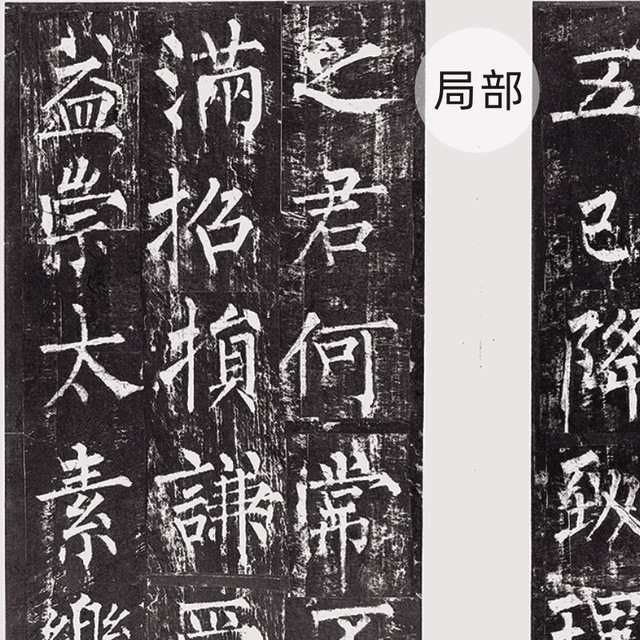 局部
五已降致理
之君何常不
滿招損謙受
益崇太素樂